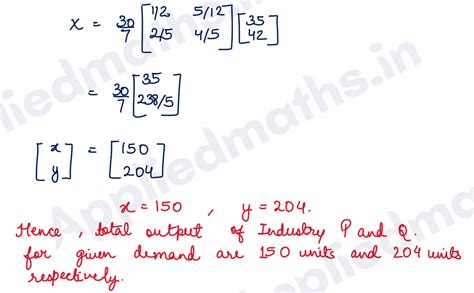 x = 30/7 [1/2 5/12; 2/5 4/5] [35; 42]
= 30/7 [35; 238/5]
[x; y] = [150; 204]
x = 150 , y = 204.
Hence , total output of Industry P and Q.
for given demand are 150 units and 204 units
respectively.
Appliedmaths.in